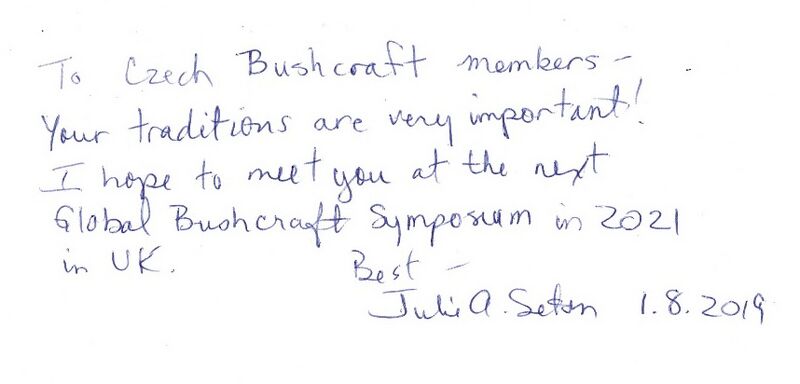 To Czech Bushcraft members -
Your traditions are very important!
I hope to meet you at the next
Global Bushcraft Symposium in 2021
in UK.
Best -
Julie A. Seton 1.8.2019